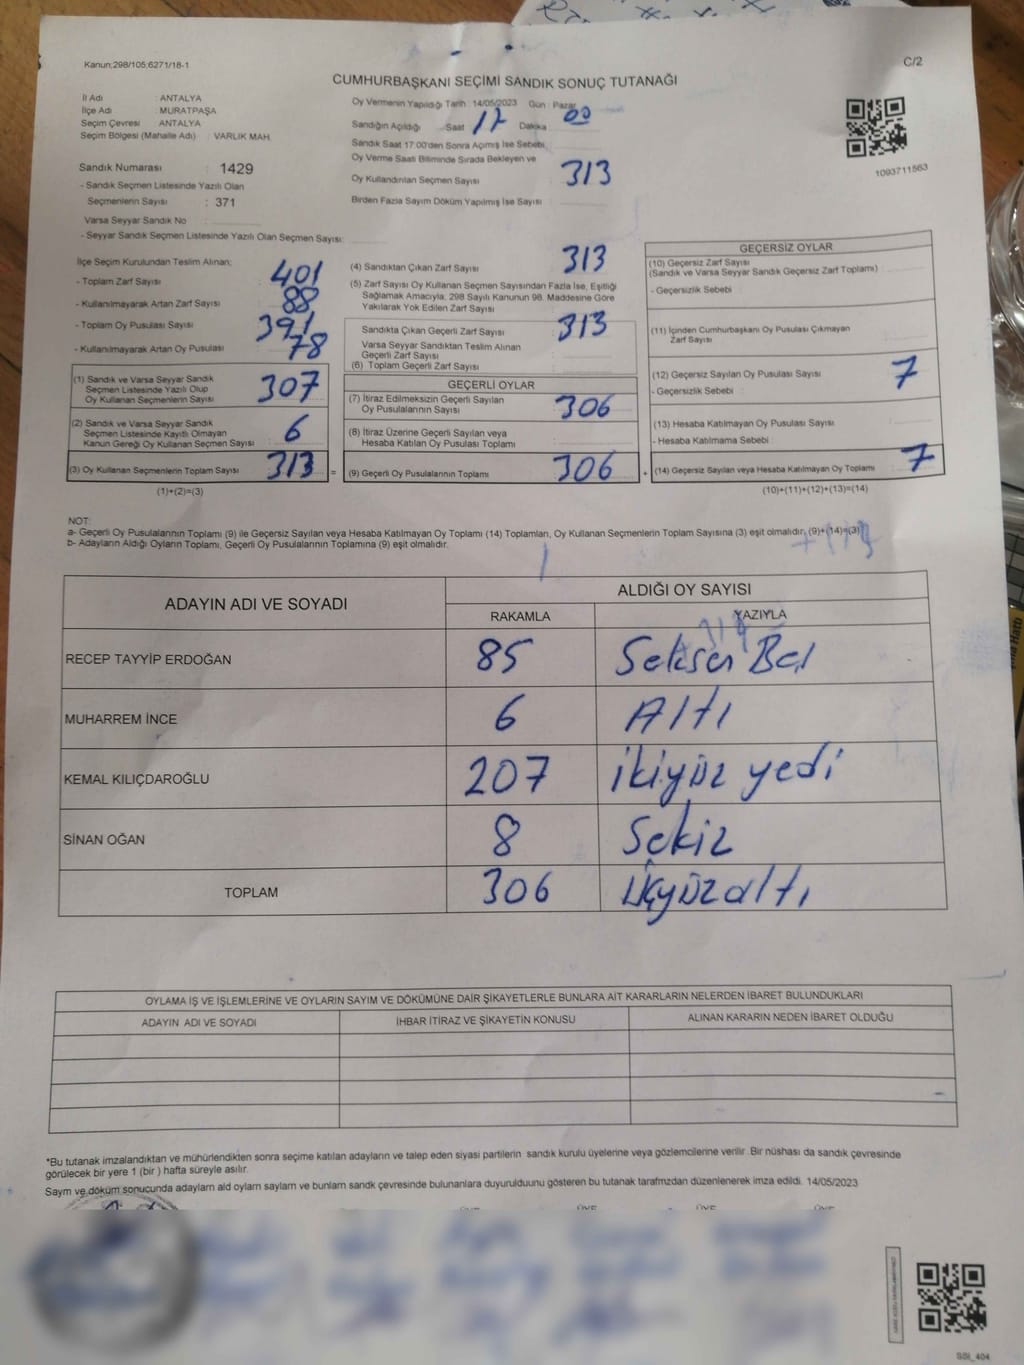 Kanun;298/105;6271/18-1
C/2
CUMHURBAŞKANI SEÇİMİ SANDIK SONUÇ TUTANAĞI
İl Adı : ANTALYA
İlçe Adı : MURATPAŞA
Seçim Çevresi : ANTALYA
Seçim Bölgesi (Mahalle Adı) : VARLIK MAH.
Sandık Numarası : 1429
- Sandık Seçmen Listesinde Yazılı Olan
Seçmenlerin Sayısı : 371
Varsa Seyyar Sandık No :
- Seyyar Sandık Seçmen Listesinde Yazılı Olan Seçmen Sayısı:
Oy Vermenin Yapıldığı Tarih : 14/05/2023 Gün : Pazar
Sandığın Açıldığı Saat 17 Dakika 00
Sandık Saat 17:00'den Sonra Açımış İse Sebebi
Oy Verme Saati Bitiminde Sırada Bekleyen ve
Oy Kullandırılan Seçmen Sayısı 313
Birden Fazla Sayım Döküm Yapılmış İse Sayısı
1093711563
İlçe Seçim Kurulundan Teslim Alınan;
- Toplam Zarf Sayısı : 401
- Kullanılmayarak Artan Zarf Sayısı : 88
- Toplam Oy Pusulası Sayısı : 391
- Kullanılmayarak Artan Oy Pusulası : 78
(1) Sandık ve Varsa Seyyar Sandık
Seçmen Listesinde Yazılı Olup
Oy Kullanan Seçmenlerin Sayısı : 307
(2) Sandık ve Varsa Seyyar Sandık
Seçmen Listesinde Kayıtlı Olmayan
Kanun Gereği Oy Kullanan Seçmen Sayısı : 6
(3) Oy Kullanan Seçmenlerin Toplam Sayısı : 313 =
(1)+(2)=(3)
(4) Sandıktan Çıkan Zarf Sayısı : 313
(5) Zarf Sayısı Oy Kullanan Seçmen Sayısından Fazla İse, Eşitliği
Sağlamak Amacıyla, 298 Sayılı Kanunun 98. Maddesine Göre
Yakılarak Yok Edilen Zarf Sayısı :
Sandıkta Çıkan Geçerli Zarf Sayısı : 313
Varsa Seyyar Sandıktan Teslim Alınan
Geçerli Zarf Sayısı :
(6) Toplam Geçerli Zarf Sayısı :
GEÇERLİ OYLAR
(7) İtiraz Edilmeksizin Geçerli Sayılan
Oy Pusulalarının Sayısı : 306
(8) İtiraz Üzerine Geçerli Sayılan veya
Hesaba Katılan Oy Pusulası Toplamı :
(9) Geçerli Oy Pusulalarının Toplamı : 306 +
GEÇERSİZ OYLAR
(10) Geçersiz Zarf Sayısı
(Sandık ve Varsa Seyyar Sandık Geçersiz Zarf Toplamı) :
- Geçersizlik Sebebi :
(11) İçinden Cumhurbaşkanı Oy Pusulası Çıkmayan
Zarf Sayısı :
(12) Geçersiz Sayılan Oy Pusulası Sayısı : 7
- Geçersizlik Sebebi :
(13) Hesaba Katılmayan Oy Pusulası Sayısı :
- Hesaba Katılmama Sebebi :
(14) Geçersiz Sayılan veya Hesaba Katılmayan Oy Toplamı : 7
(10)+(11)+(12)+(13)=(14)
NOT:
a- Geçerli Oy Pusulalarının Toplamı (9) ile Geçersiz Sayılan veya Hesaba Katılmayan Oy Toplamı (14) Toplamları, Oy Kullanan Seçmenlerin Toplam Sayısına (3) eşit olmalıdır. (9)+(14)=(3)
b- Adayların Aldığı Oyların Toplamı, Geçerli Oy Pusulalarının Toplamına (9) eşit olmalıdır.
ADAYIN ADI VE SOYADI
ALDIĞI OY SAYISI
RAKAMLA YAZIYLA
RECEP TAYYİP ERDOĞAN 85 Seksen Beş
MUHARREM İNCE 6 Altı
KEMAL KILIÇDAROĞLU 207 ikiyüz yedi
SİNAN OĞAN 8 Sekiz
TOPLAM 306 üçyüzaltı
OYLAMA İŞ VE İŞLEMLERİNE VE OYLARIN SAYIM VE DÖKÜMÜNE DAİR ŞİKAYETLERLE BUNLARA AİT KARARLARIN NELERDEN İBARET BULUNDUKLARI
ADAYIN ADI VE SOYADI İHBAR İTİRAZ VE ŞİKAYETİN KONUSU ALINAN KARARIN NEDEN İBARET OLDUĞU
*Bu tutanak imzalandıktan ve mühürlendikten sonra seçime katılan adayların ve talep eden siyasi partilerin sandık kurulu üyelerine veya gözlemcilerine verilir. Bir nüshası da sandık çevresinde
görülecek bir yere 1 (bir ) hafta süreyle asılır.
Sayım ve döküm sonucunda adayların ald oyların sayıları ve bunlarn sandk çevresinde bulunanlara duyurulduunu gösteren bu tutanak tarafmzdan düzenlenerek imza edildi. 14/05/2023
ÜYE ÜYE ÜYE ÜYE
SSI_404